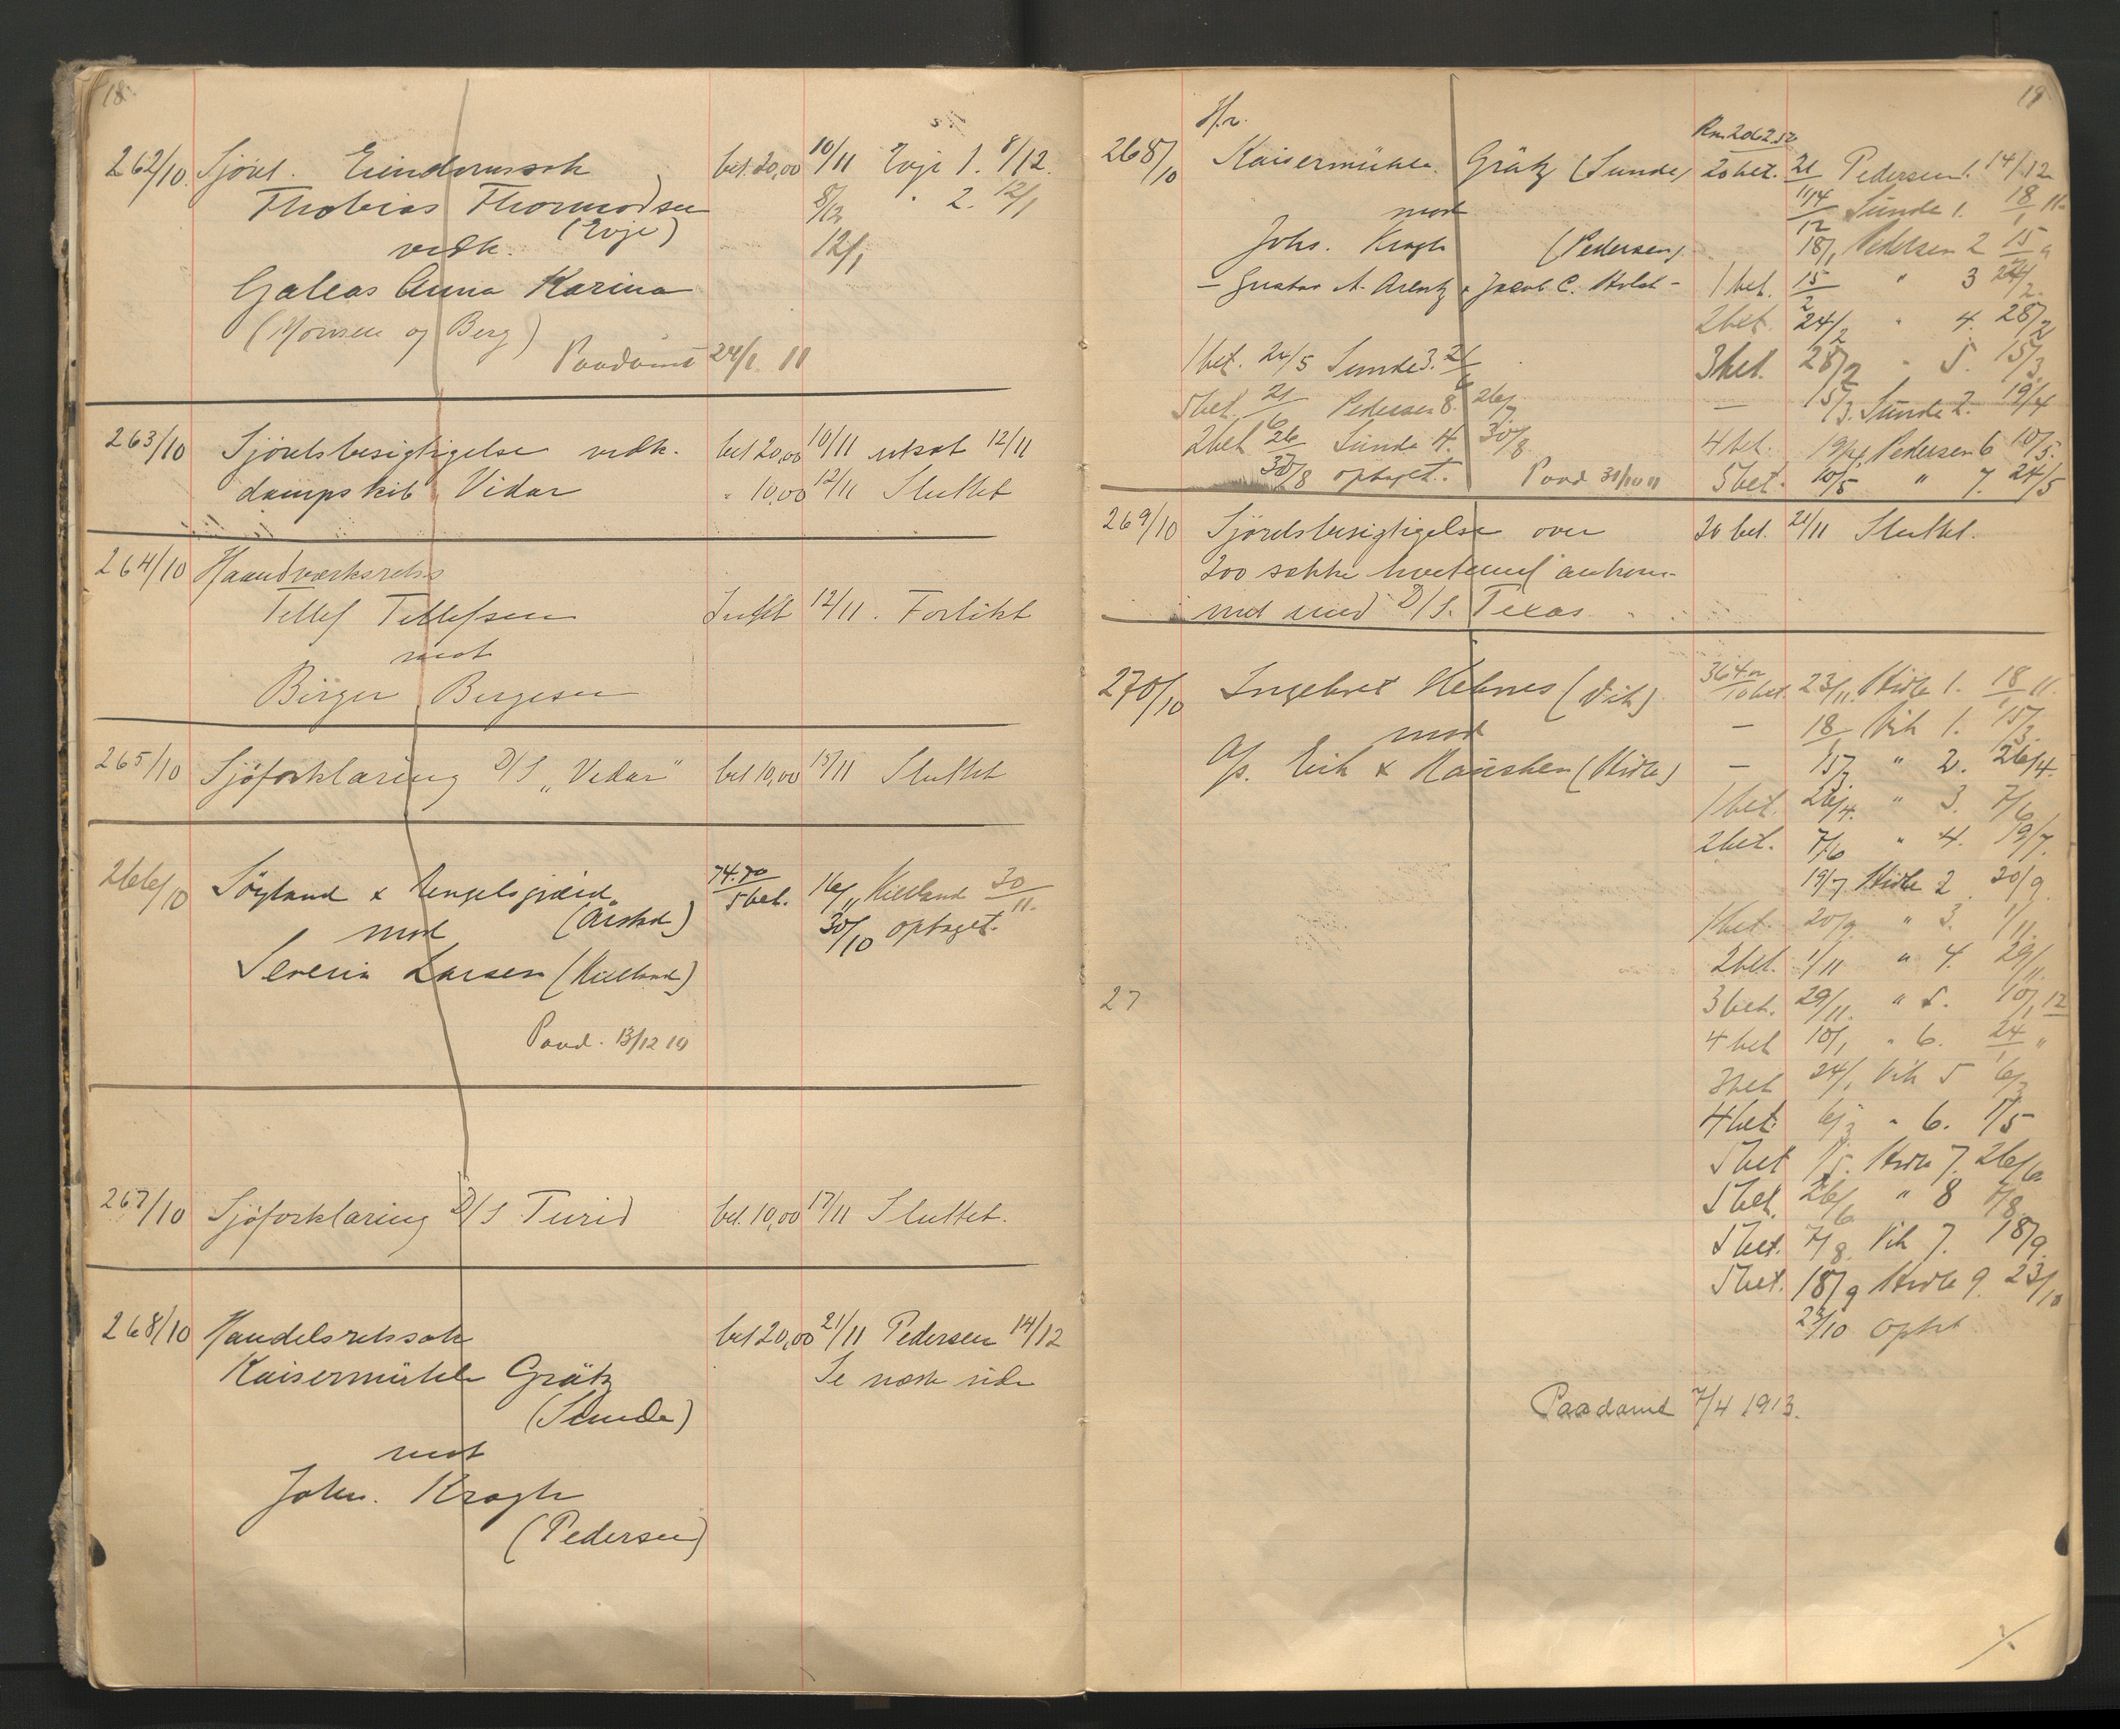 18.
262/10 Sjöret. Eiendomssak bet. 20,00 10/11 Evje 1. 8/12.
Thobias Thormodsen 8/12 " 2. 12/1
(Evje) 12/1
vedk.
Galeas Anna Karina
(Monsen og Berg)
Paadømt 24/1 11
263/10 Sjöretsbesigtigelse vedk. bet 20,00 10/11 utsat 12/11
dampskib Vidar " 10,00 12/11 Sluttet
264/10 Haandværksrets
Tellef Tellefsen 12/11. Forlikt
mot
Birger Bergesen
265/10 Sjöforklaring D/S "Vidar" bet 10,00 15/11 Sluttet
266/10 Söyland & Rengelsgjærd 74.70 16/11 Kielland 30/11.
(Årstad) 5 bet.
mod 30/10 optaget.
Severin Larsen (Kielland)
Paad. 13/12 10
267/10 Sjöforklaring D/S Turid bet. 10,00 17/11 Sluttet.
268/10 Handelsretssak bet 20,00 21/11 Pedersen 14/12
Kaisermühle Grätz Se næste side
(Sunde)
mot
Johs. Kragh
(Pedersen)
19
H.r. Rm 2062.50
268/10 Kaisermühle Grätz (Sunde) 20 bet. 21/11 Pedersen 1. 14/12
mod 14/12 Sunde 1. 18/1 11
Johs. Kragh (Pedersen) 18/1 Pedersen 2 15/2
– Gustav A. Arentz & Jacob C. Holst – 1 bet. 15/2 " 3 24/2
2 bet. 24/2 " 4. 28/2
1 bet. 24/5 Sunde 3. 21/6 3 bet. 28/2 " 5. 15/3.
5 bet. 21/6 Pedersen 8. 26/7 — 15/3. Sunde 2. 19/4
2 bet 26/7 Sunde 4. 30/8 4 bet. 19/4 Pedersen 6 10/5.
30/8 optaget. Paad 31/10 11 5 bet. 10/5 " 7. 24/5
269/10 Sjöretsbesigtigelse over 20 bet. 21/11 Sluttet.
300 sække hvetemel ankom-
met med D/S. Texas
270/10 Ingebret Helnes (Vik) 364.00/10 bet. 23/11. Hidle 1. 18/1 11.
mod — 18/1 Vik 1. 15/3.
A/s. Erik & Rausken (Hidle) — 15/3 " 2. 26/4.
1 bet. 26/4. " 3. 7/6
2 bet. 7/6 " 4. 19/7.
19/7 Hidle 2 20/9.
1 bet. 20/9. " 3. 1/11.
2 bet. 1/11 " 4. 29/11.
27 3 bet. 29/11. " 5. 10/1 12
4 bet 10/1 " 6. 24/1 "
3 bet 24/1 Vik 5 6/3
4 bet. 6/3 " 6. 1/5
5 bet 1/5. Hidle 7. 26/6
5 bet. 26/6 " 8 7/8.
5 bet. 7/8. Vik 7. 18/9.
5 bet. 18/9 Hidle 9. 23/10
23/10 Optat
Paadømt 7/4 1913.